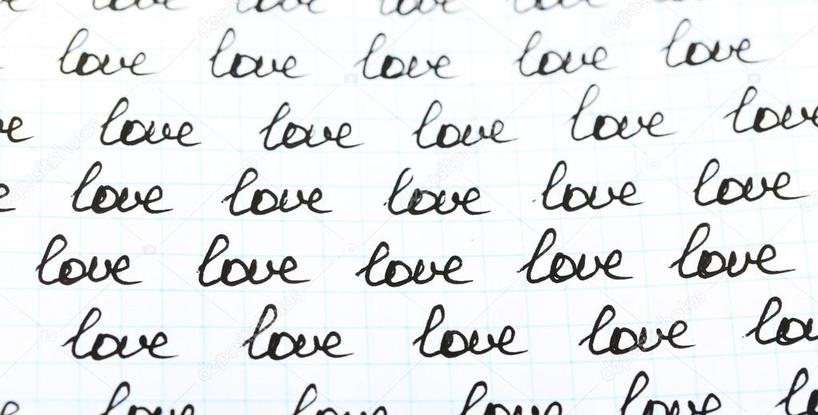 love love love love love
e love love love love love
love love love love love
love love love love love
love love love love lov
love love love love